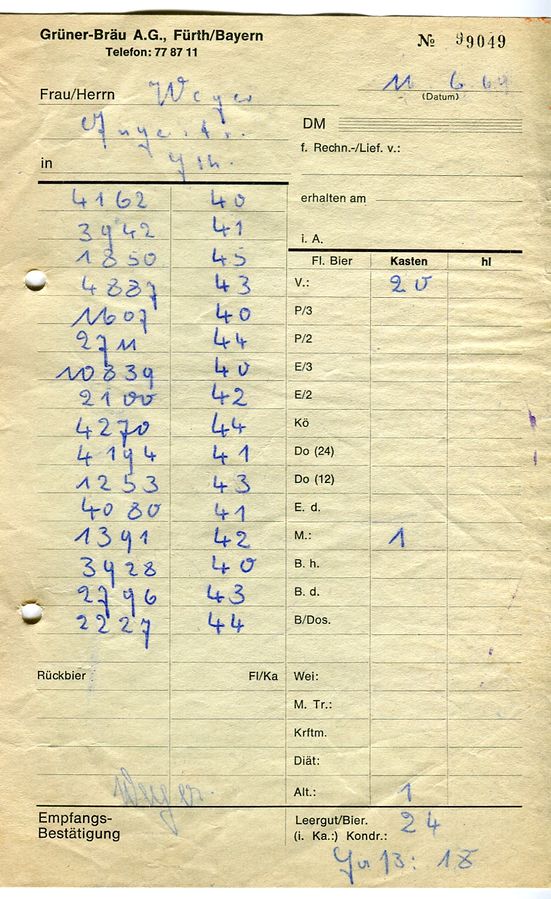 Grüner-Bräu A.G., Fürth/Bayern
Telefon: 77 87 11
№ 99049
Frau/Herrn Weyer
11 6. 69
(Datum)
DM
f. Rechn.-/Lief. v.:
in
4162 40
erhalten am
3942 41
i. A.
1850 45
Fl. Bier Kasten hl
4887 43
V.: 20
1607 40
P/3
2711 44
P/2
10839 40
E/3
2100 42
E/2
4270 44
Kö
4194 41
Do (24)
1253 43
Do (12)
4080 41
E. d.
1391 42
M.: 1
3928 40
B. h.
2796 43
B. d.
2227 44
B/Dos.
Rückbier Fl/Ka
Wei:
M. Tr.:
Krftm.
Diät:
Weyer.
Alt.: 1
Empfangs-
Bestätigung
Leergut/Bier.
(i. Ka.:) Kondr.: 24